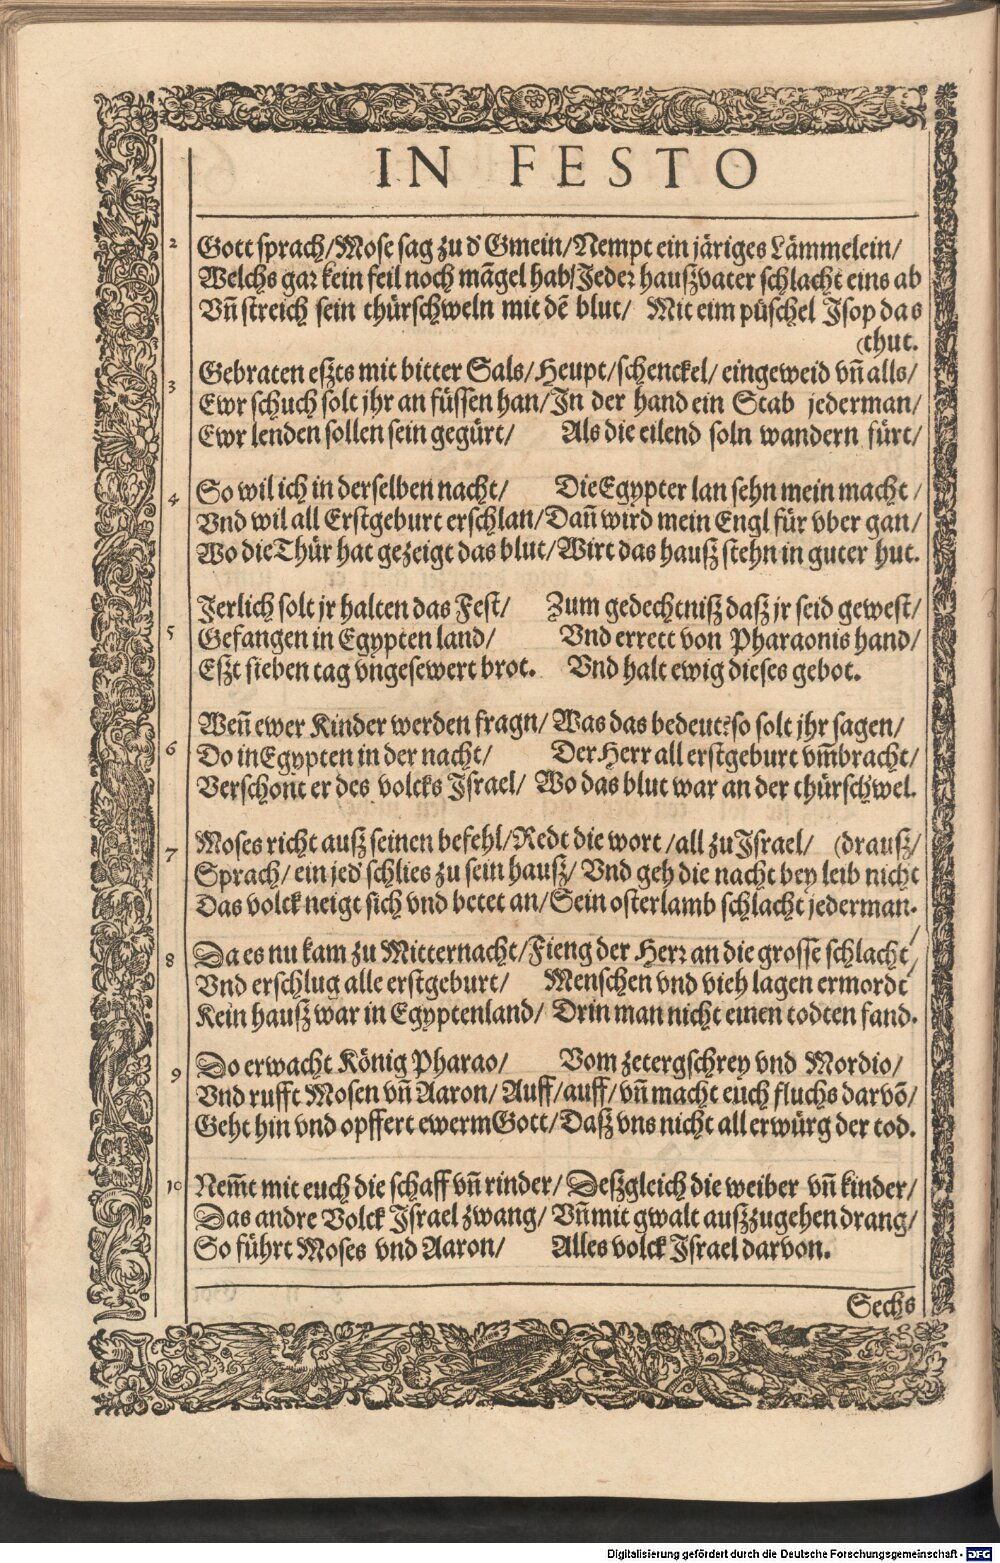 IN FESTO
2 Gott sprach/Mose sag zu d' Gmein/Nempt ein järiges Lämmelein/
Welchs gar kein feil noch mãgel hab/Jeder haußvater schlacht eins ab
Vñ streich sein thürschweln mit dẽ blut/ Mit eim püschel Isop das
(thut.
3 Gebraten eßts mit bitter Sals/Heupt/schenckel/eingeweid vñ alls/
Ewr schuch solt jhr an füssen han/In der hand ein Stab jederman/
Ewr lenden sollen sein gegürt/ Als die eilend soln wandern fürt/
4 So wil ich in derselben nacht/ Die Egypter lan sehn mein macht/
Vnd wil all Erstgeburt erschlan/Dañ wird mein Engl für vber gan/
Wo die Thür hat gezeigt das blut/Wirt das hauß stehn in guter hut.
5 Jerlich solt jr halten das Fest/ Zum gedechtniß daß jr seid gewest/
Gefangen in Egypten land/ Vnd errett von Pharaonis hand/
Eßt sieben tag vngesewert brot. Vnd halt ewig dieses gebot.
6 Weñ ewer Kinder werden fragn/Was das bedeut?so solt jhr sagen/
Do in Egypten in der nacht/ Der Herr all erstgeburt vm̃bracht/
Verschont er des volcks Israel/ Wo das blut war an der thürschwel.
7 Moses richt auß seinen befehl/Redt die wort/all zu Israel/ (drauß/
Sprach/ein jed' schlies zu sein hauß/ Vnd geh die nacht bey leib nicht
Das volck neigt sich vnd betet an/Sein osterlamb schlacht jederman.
8 Da es nu kam zu Mitternacht/Fieng der Herr an die grosse schlacht/
Vnd erschlug alle erstgeburt/ Menschen vnd vieh lagen ermordt/
Kein hauß war in Egyptenland/ Drin man nicht einen todten fand.
9 Do erwacht König Pharao/ Vom zetergschrey vnd Mordio/
Vnd rufft Mosen vñ Aaron/ Auff/auff/vñ macht euch fluchs darvõ/
Geht hin vnd opffert ewerm Gott/Daß vns nicht all erwürg der tod.
10 Nem̃t mit euch die schaff vñ rinder/ Deßgleich die weiber vñ kinder/
Das andre Volck Israel zwang/ Vñ mit gwalt außzugehen drang/
So führt Moses vnd Aaron/ Alles volck Israel darvon.
Sechs
Digitalisierung gefördert durch die Deutsche Forschungsgemeinschaft - DFG